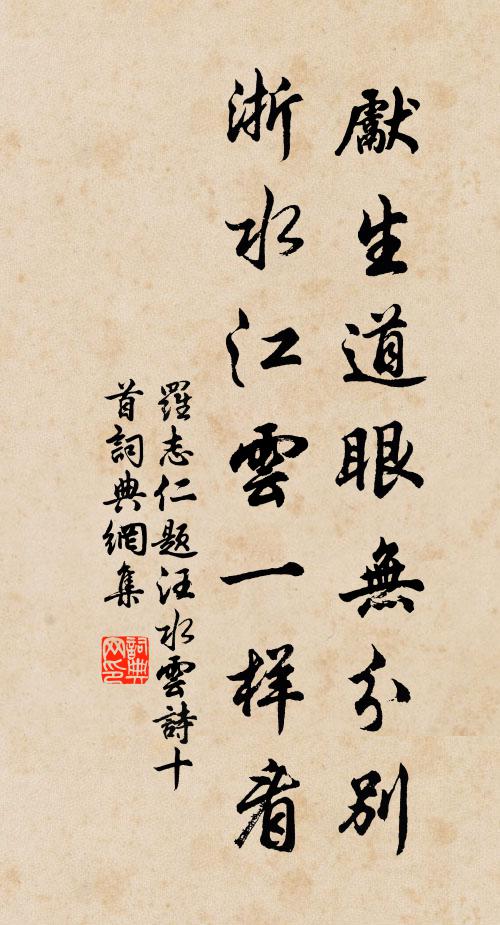 獻生道眼無分別
浙水江雲一样看
羅志仁题汪水雲詩十
首詞典網集
詞典
网印